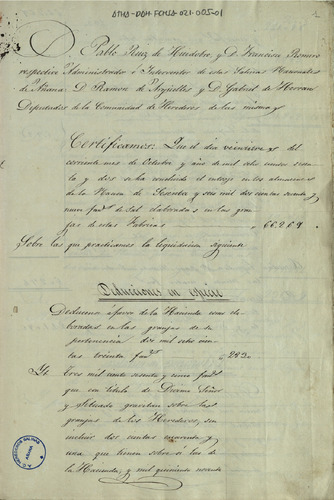 ATHA-DAH-FCHSA-021-005-01
1
D. Pablo Ruiz de Huidobro, y D. Francisco Romero
respective Administrador é Interventor de estas Fabricas Nacionales
de Añana: D. Ramon de Arguelles y D. Gabriel de Herran
Deputados de la Comunidad de Herederos de las mismas
Certificamos: Que el dia veintinueve del
corriente mes de Octubre y año de mil ocho cientos
y dos se ha concluido el entroje en los almacenes
de la Hacienda de Sesenta y seis mil dos cientas sesenta y
nueve fan.s de sal elaboradas en las gran
jas de estas Fabricas 66,269
Sobre las que practicamos la liquidacion siguiente
Deducciones en especie
Deducense á favor de la Hacienda como ela
boradas en las granjas de su
pertenencia dos mil ocho cien
tas treinta fan.s
Yt. Tres mil ciento sesenta y fan.s
que con titulo de Diezmo Señor
y Situado gravitan sobre las
granjas de los Herederos, sin
incluir dos cientas cuarenta y
una que tienen sobre sí las de
la Hacienda, y mil quinientas